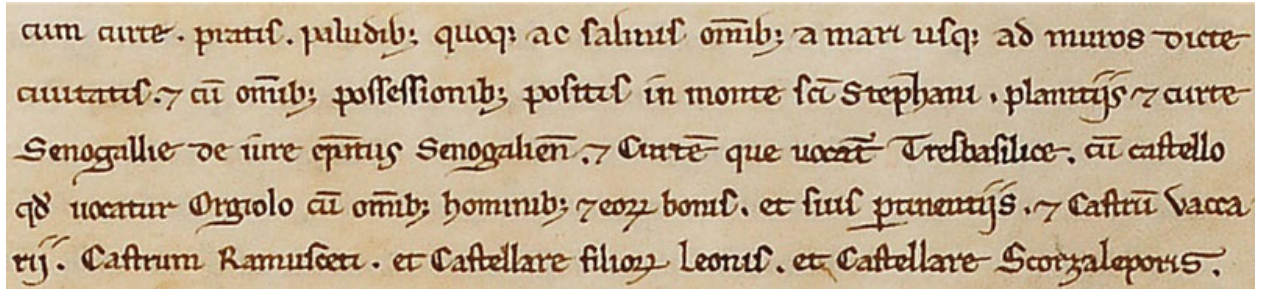 cum curte . pratis . paludib; quoq; ac salinis om̅ib; a mari usq; ad muros dicte
ciuitatis . ⁊ cu̅ om̅ib; possessionib; positis in monte sc̅i Stephani . planitijs ⁊ curte
Senogallie de iure ep̅itus Senogalien̅ . ⁊ Curte̅ que uocat᷑ Tresbasilice . cu̅ castello
qd̅ uocatur Orgiolo cu̅ om̅ib; hominib; ⁊ eoꝝ bonis . et suis ꝑtinentijs . ⁊ Castru̅ Vacca
rij . Castrum Ramusceti . et Castellare filioꝝ Leonis . et Castellare Scorzaleporis .